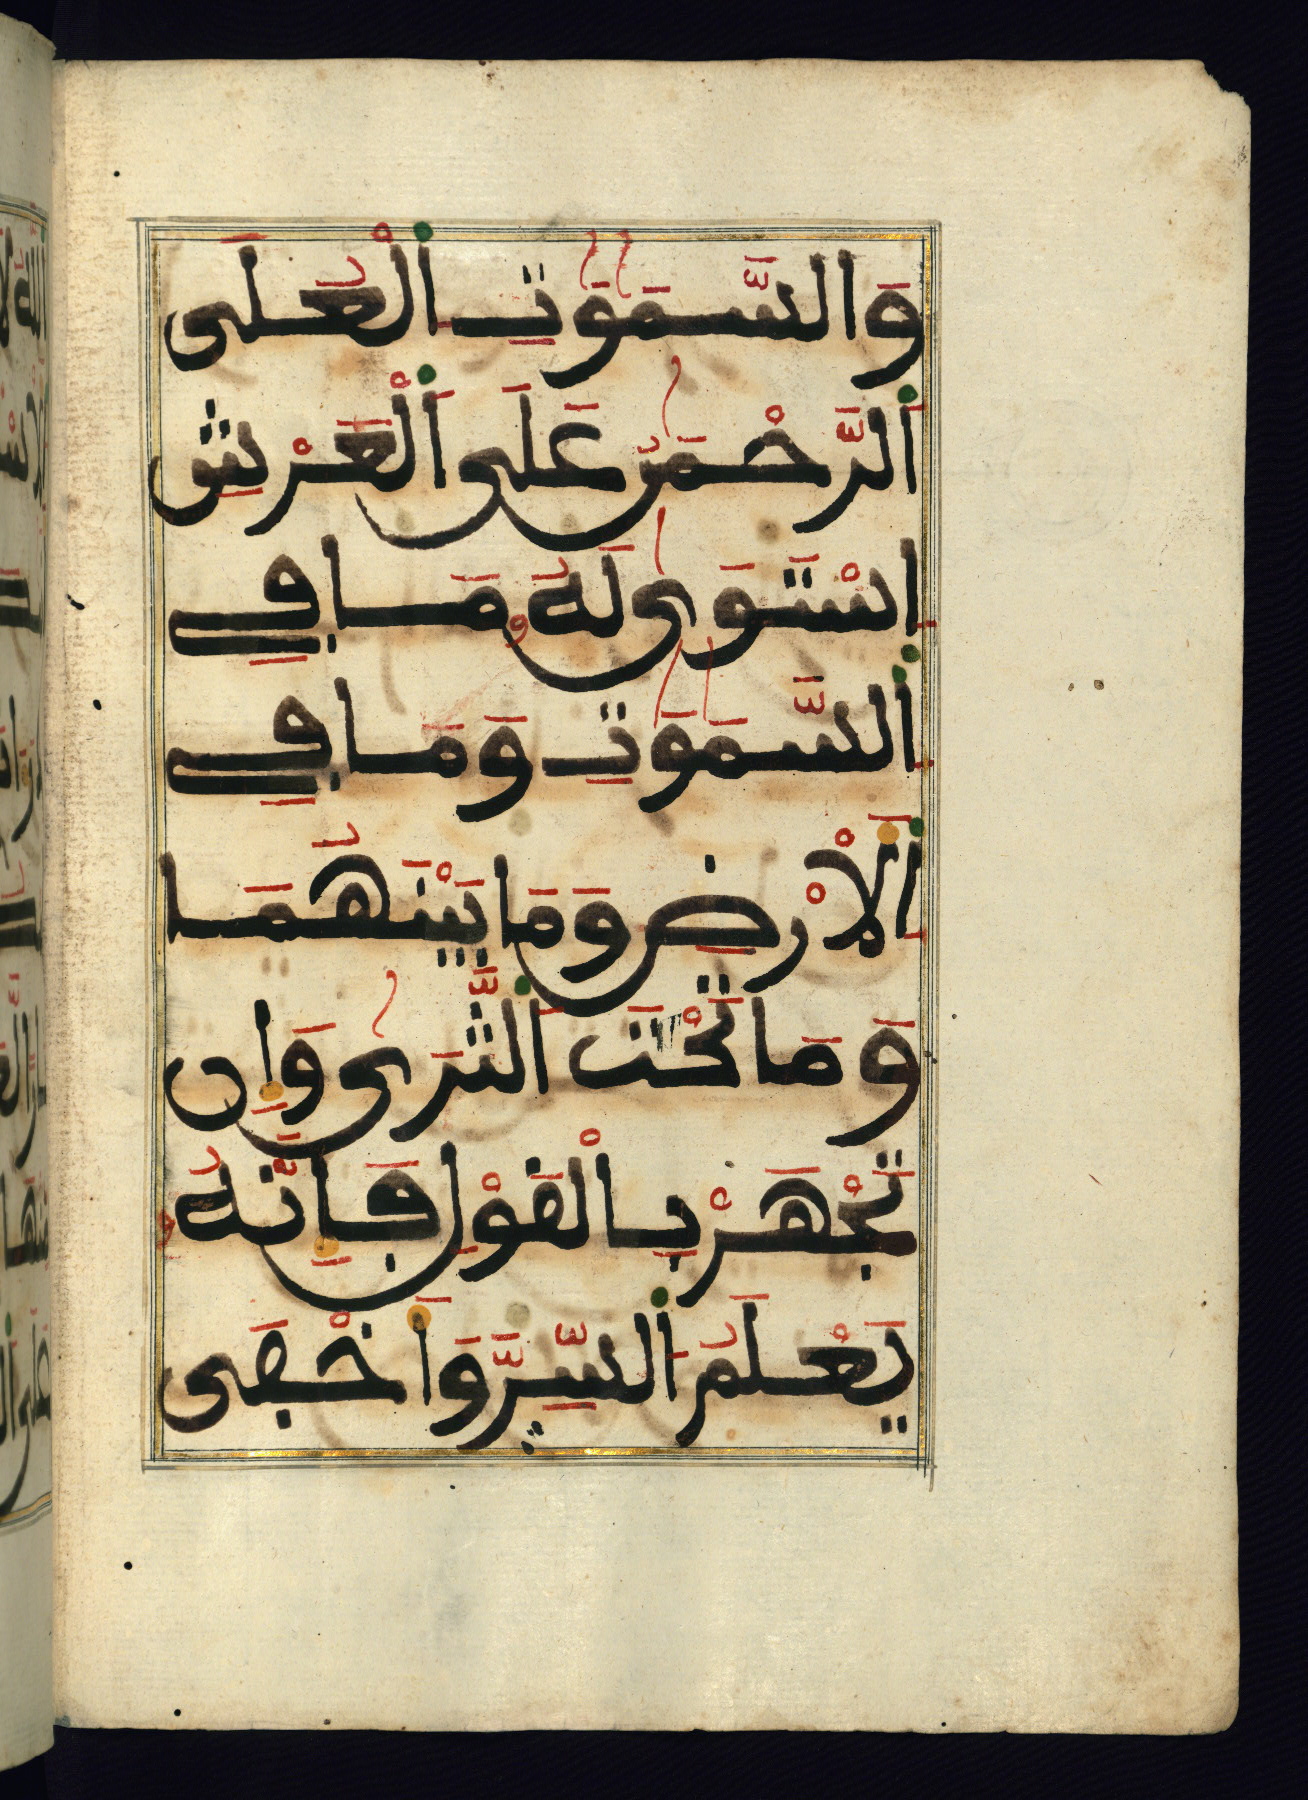 وَالسَّمَٰوَٰتِ اَلْعُلَى
اَلرَّحْمَٰنُ عَلَى اَلْعَرْشِ
اِسْتَوَىٰ لَهُۥ مَا فِے
اِلسَّمَٰوَٰتِ وَمَا فِے
اِلَارْضِ وَمَا بَيْنَهُمَا
وَمَا تَحْتَ اَلثَّرَىٰ وَإِن
تَجْهَرْ بِالْقَوْلِ فَإِنَّهُۥ
يَعْلَمُ اُلسِّرَّ وَأَخْفَى